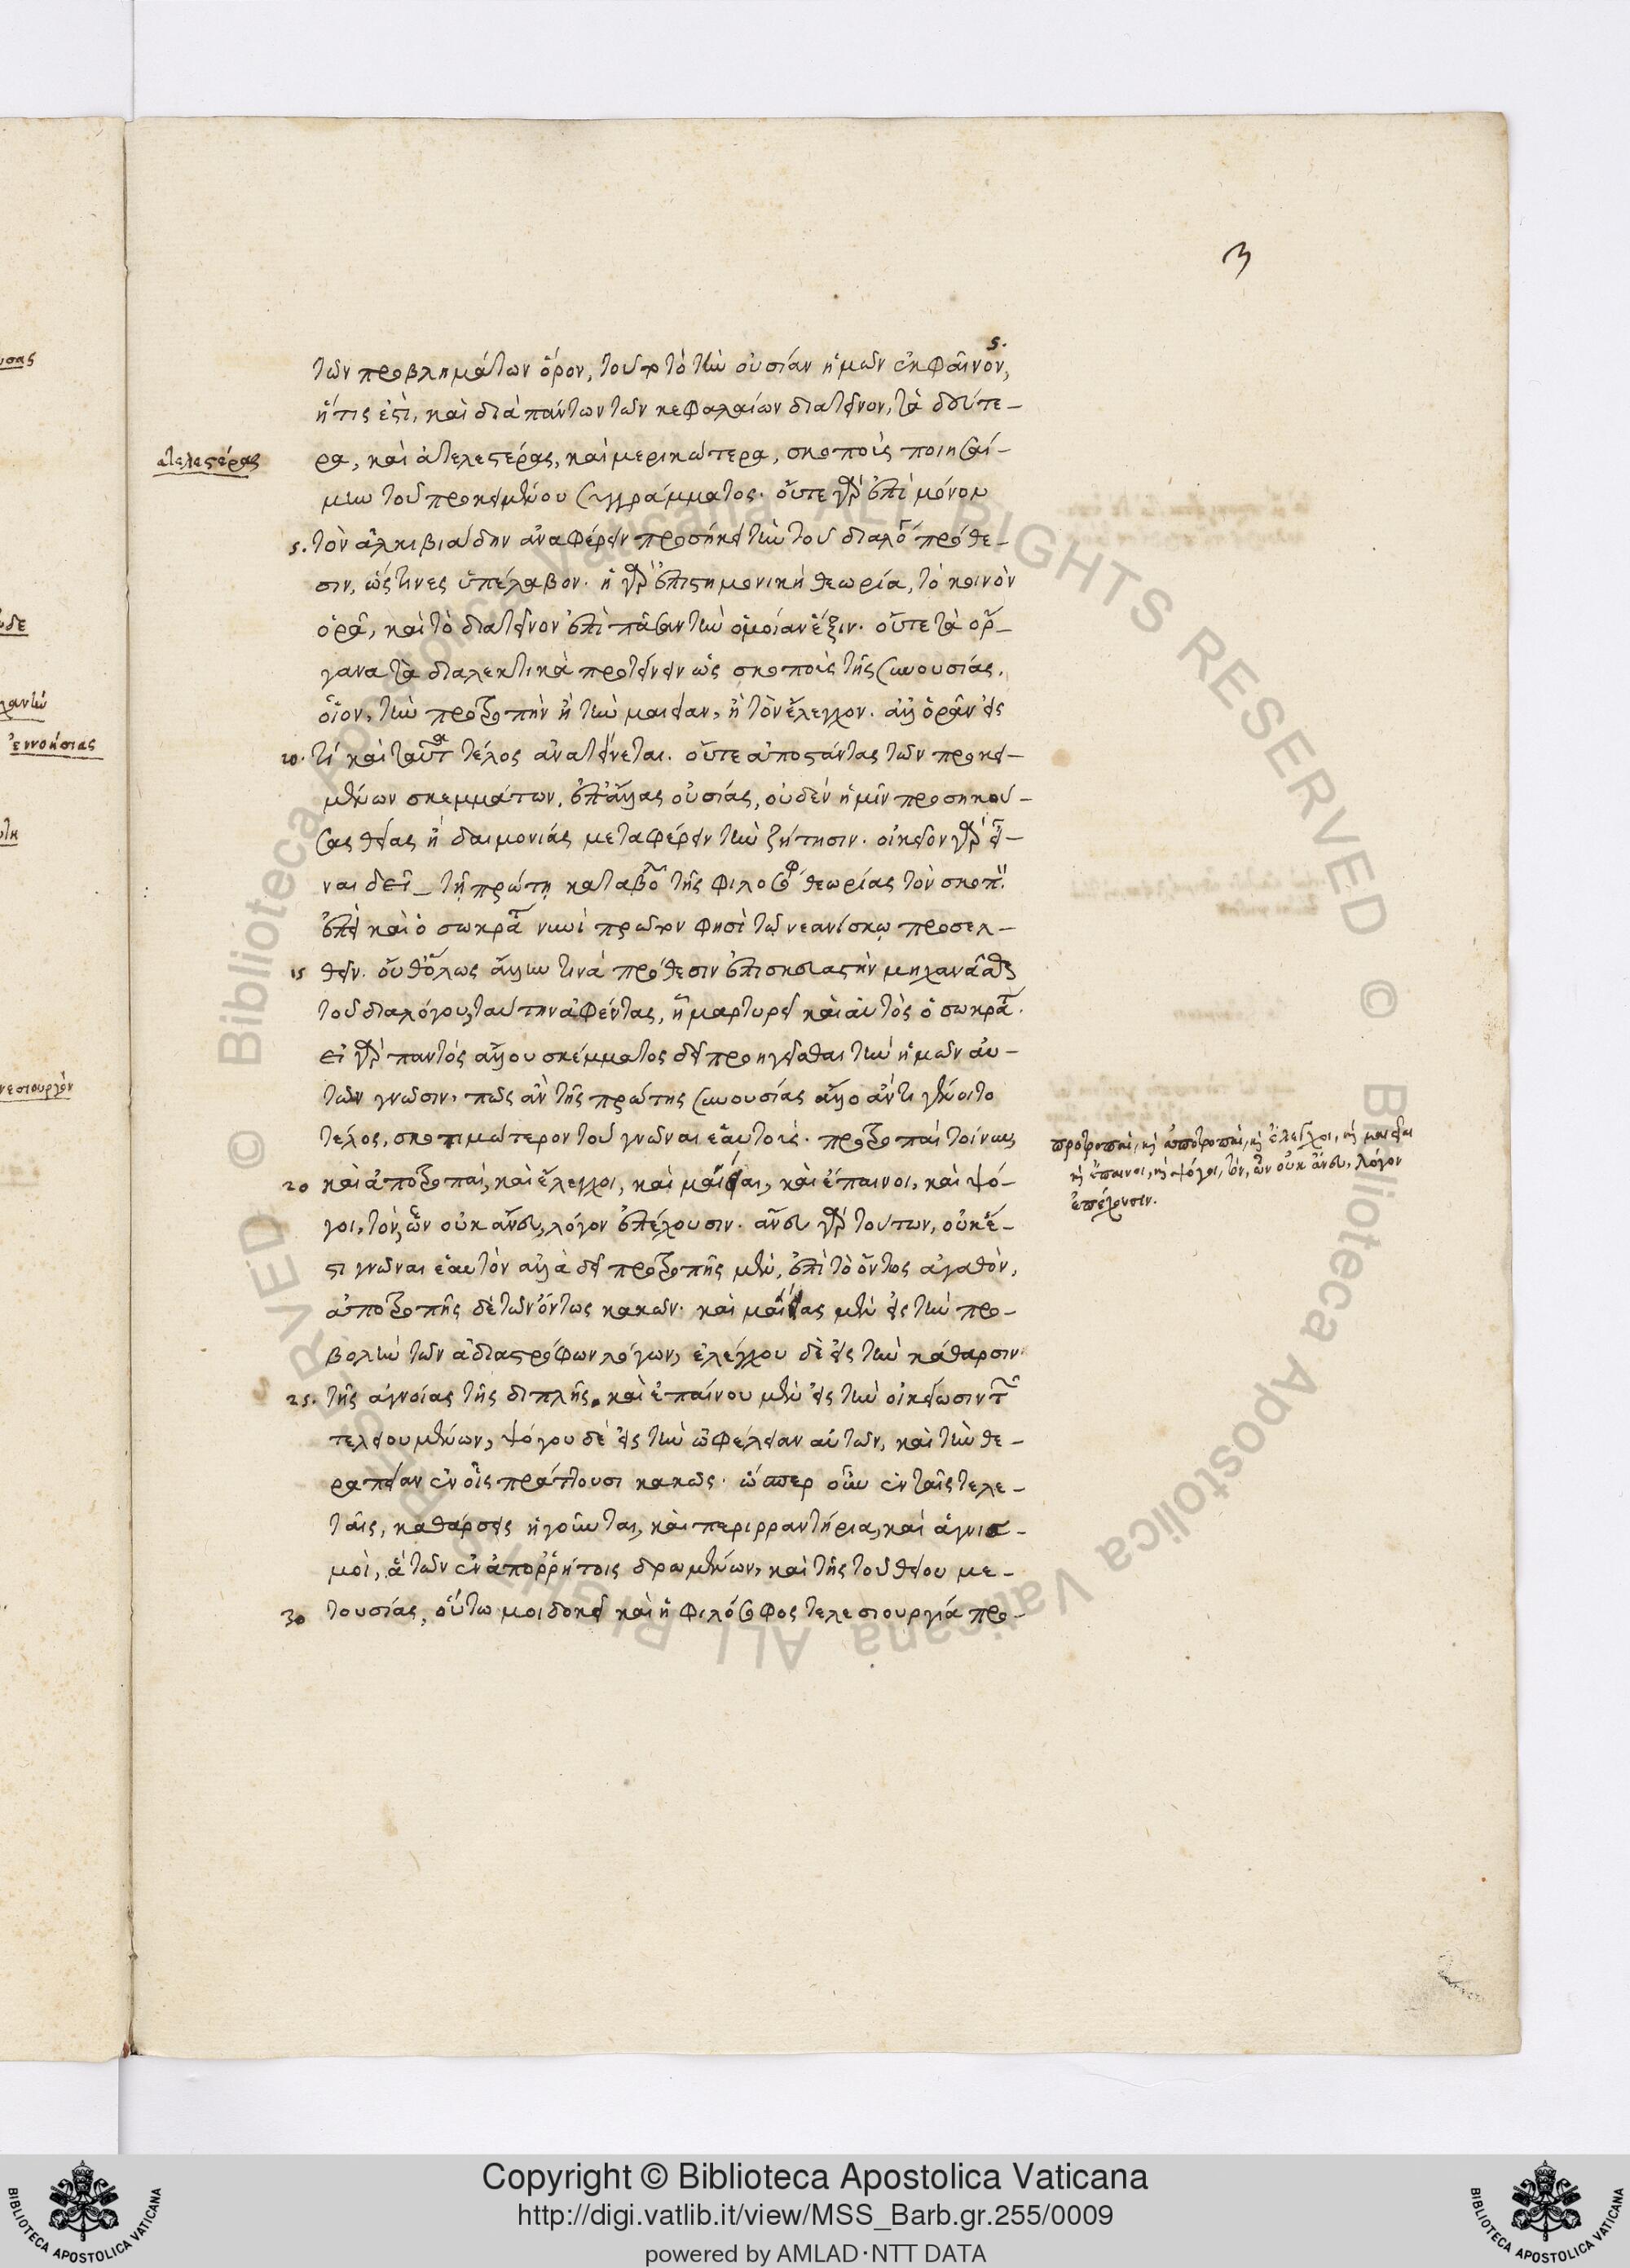 3
5.
τῶν προβλημάτων ὅρον, τοῦτο τὸ τὴν οὐσίαν ἡμῶν ἐκφαῖνον,
ἥτις ἐστὶ, καὶ διὰ πάντων τῶν κεφαλαίων διατεῖνον, τὰ δεύτε-
ἀτελεστέρας
ρα, καὶ ἀτελεστέρας, καὶ μερικώτερα, σκοποὺς ποιησαί-
μην τοῦ προκειμένου συγγράμματος. οὔτε γὰρ ἐπὶ μόνον
5. τὸν ἀλκιβιάδην ἀναφέρειν προσήκει τὴν τοῦ διαλό πρόθε-
σιν, ὥς τινες ὑπέλαβον. ἡ γὰρ ἐπιστημονικὴ θεωρία, τὸ κοινὸν
ὁρᾷ, καὶ τὸ διατεῖνον ἐπὶ πᾶσαν τὴν ὁμοίαν ἕξιν. οὔτε τὰ ὄρ-
γανα τὰ διαλεκτικὰ προτείνειν ὡς σκοποὺς τῆς συνουσίας.
οἷον, τὴν προτροπὴν ἢ τὴν μαιείαν, ἢ τὸν ἔλεγχον. ἀλλ' ὁρᾶν εἰς
10. τί καὶ ταῦτα τέλος ἀνατείνεται. οὔτε ἀποστάντας τῶν προκει-
μένων σκεμμάτων, ἐπ' ἄλλας οὐσίας, οὐδὲν ἡμῖν προσηκού-
σας θείας ἢ δαιμονιάς μεταφέρειν τὴν ζήτησιν. οἰκεῖον γὰρ εἶ-
ναι δεῖ _ τῇ πρώτῃ καταβο τῆς φιλοσοφ θεωρίας τὸν σκοπ.
ἐπεὶ καὶ ὁ σωκράτ νυνὶ πρῶτον φησὶ τῷ νεανίσκῳ προσελ-
15 θεῖν. οὔθ' ὅλως ἄλλην τινὰ πρόθεσιν ἐπεισοδιαστὴν μηχανᾶσθαι
τοῦ διαλόγου, ταύτην ἀφέντας, ᾗ μαρτυρεῖ καὶ αὐτὸς ὁ σωκράτ.
εἰ γὰρ παντὸς ἄλλου σκέμματος δεῖ προηγεῖσθαι τὴν ἡμῶν αὐ-
τῶν γνῶσιν, πῶς ἂν τῆς πρώτης συνουσίας ἄλλο ἄν τι γένοιτο
τέλος, σκοπιμώτερον τοῦ γνῶναι ἑαυτούς. προτροπαὶ τοίνυν,
20 καὶ ἀποτροπαὶ, καὶ ἔλεγχοι, καὶ μαιεῖαι, καὶ ἔπαινοι, καὶ ψό-
γοι, τὸν, ὧν οὐκ ἄνευ, λόγον ἐπέχουσιν. ἄνευ γὰρ τούτων, οὐκ ἔ-
στι γνῶναι ἑαυτὸν ἀλλὰ δεῖ προτροπῆς μὲν, ἐπὶ τὸ ὄντως ἀγαθὸν,
ἀποτροπῆς δὲ τῶν ὄντως κακῶν. καὶ μαιείας μὲν εἰς τὴν προ-
βολὴν τῶν ἀδιαστρόφων λόγων, ἐλέγχου δὲ εἰς τὴν κάθαρσιν
25. τῆς ἀγνοίας τῆς διπλῆς. καὶ ἐπαίνου μὲν εἰς τὴν οἰκείωσιν τ
τελειουμένων, ψόγου δὲ εἰς τὴν ὠφέλειαν αὐτῶν, καὶ τὴν θε-
ραπείαν ἐν οἷς πράττουσι κακῶς. ὥσπερ οὖν ἐν ταῖς τελε-
ταῖς, καθάρσεις ἡγοῦνται, καὶ περιρραντήρια, καὶ ἁγνισ-
μοὶ, ἃ τῶν ἐν ἀπορρήτοις δρωμένων, καὶ τῆς τοῦ θείου με-
30 τουσίας, οὕτω μοι δοκεῖ καὶ ἡ φιλόσοφος τελεσιουργιά προ-
προτροπαὶ, καὶ ἀποτροπαὶ, καὶ ἔλεγχοι, καὶ μαιεῖαι
καὶ ἔπαινοι, καὶ ψόγοι, τὸν, ὧν οὐκ ἄνευ, λόγον
ἐπέχουσιν.
Copyright © Biblioteca Apostolica Vaticana
http://digi.vatlib.it/view/MSS_Barb.gr.255/0009
powered by AMLAD·NTT DATA
BIBLIOTECA APOSTOLICA VATICANA
BIBLIOTECA APOSTOLICA VATICANA